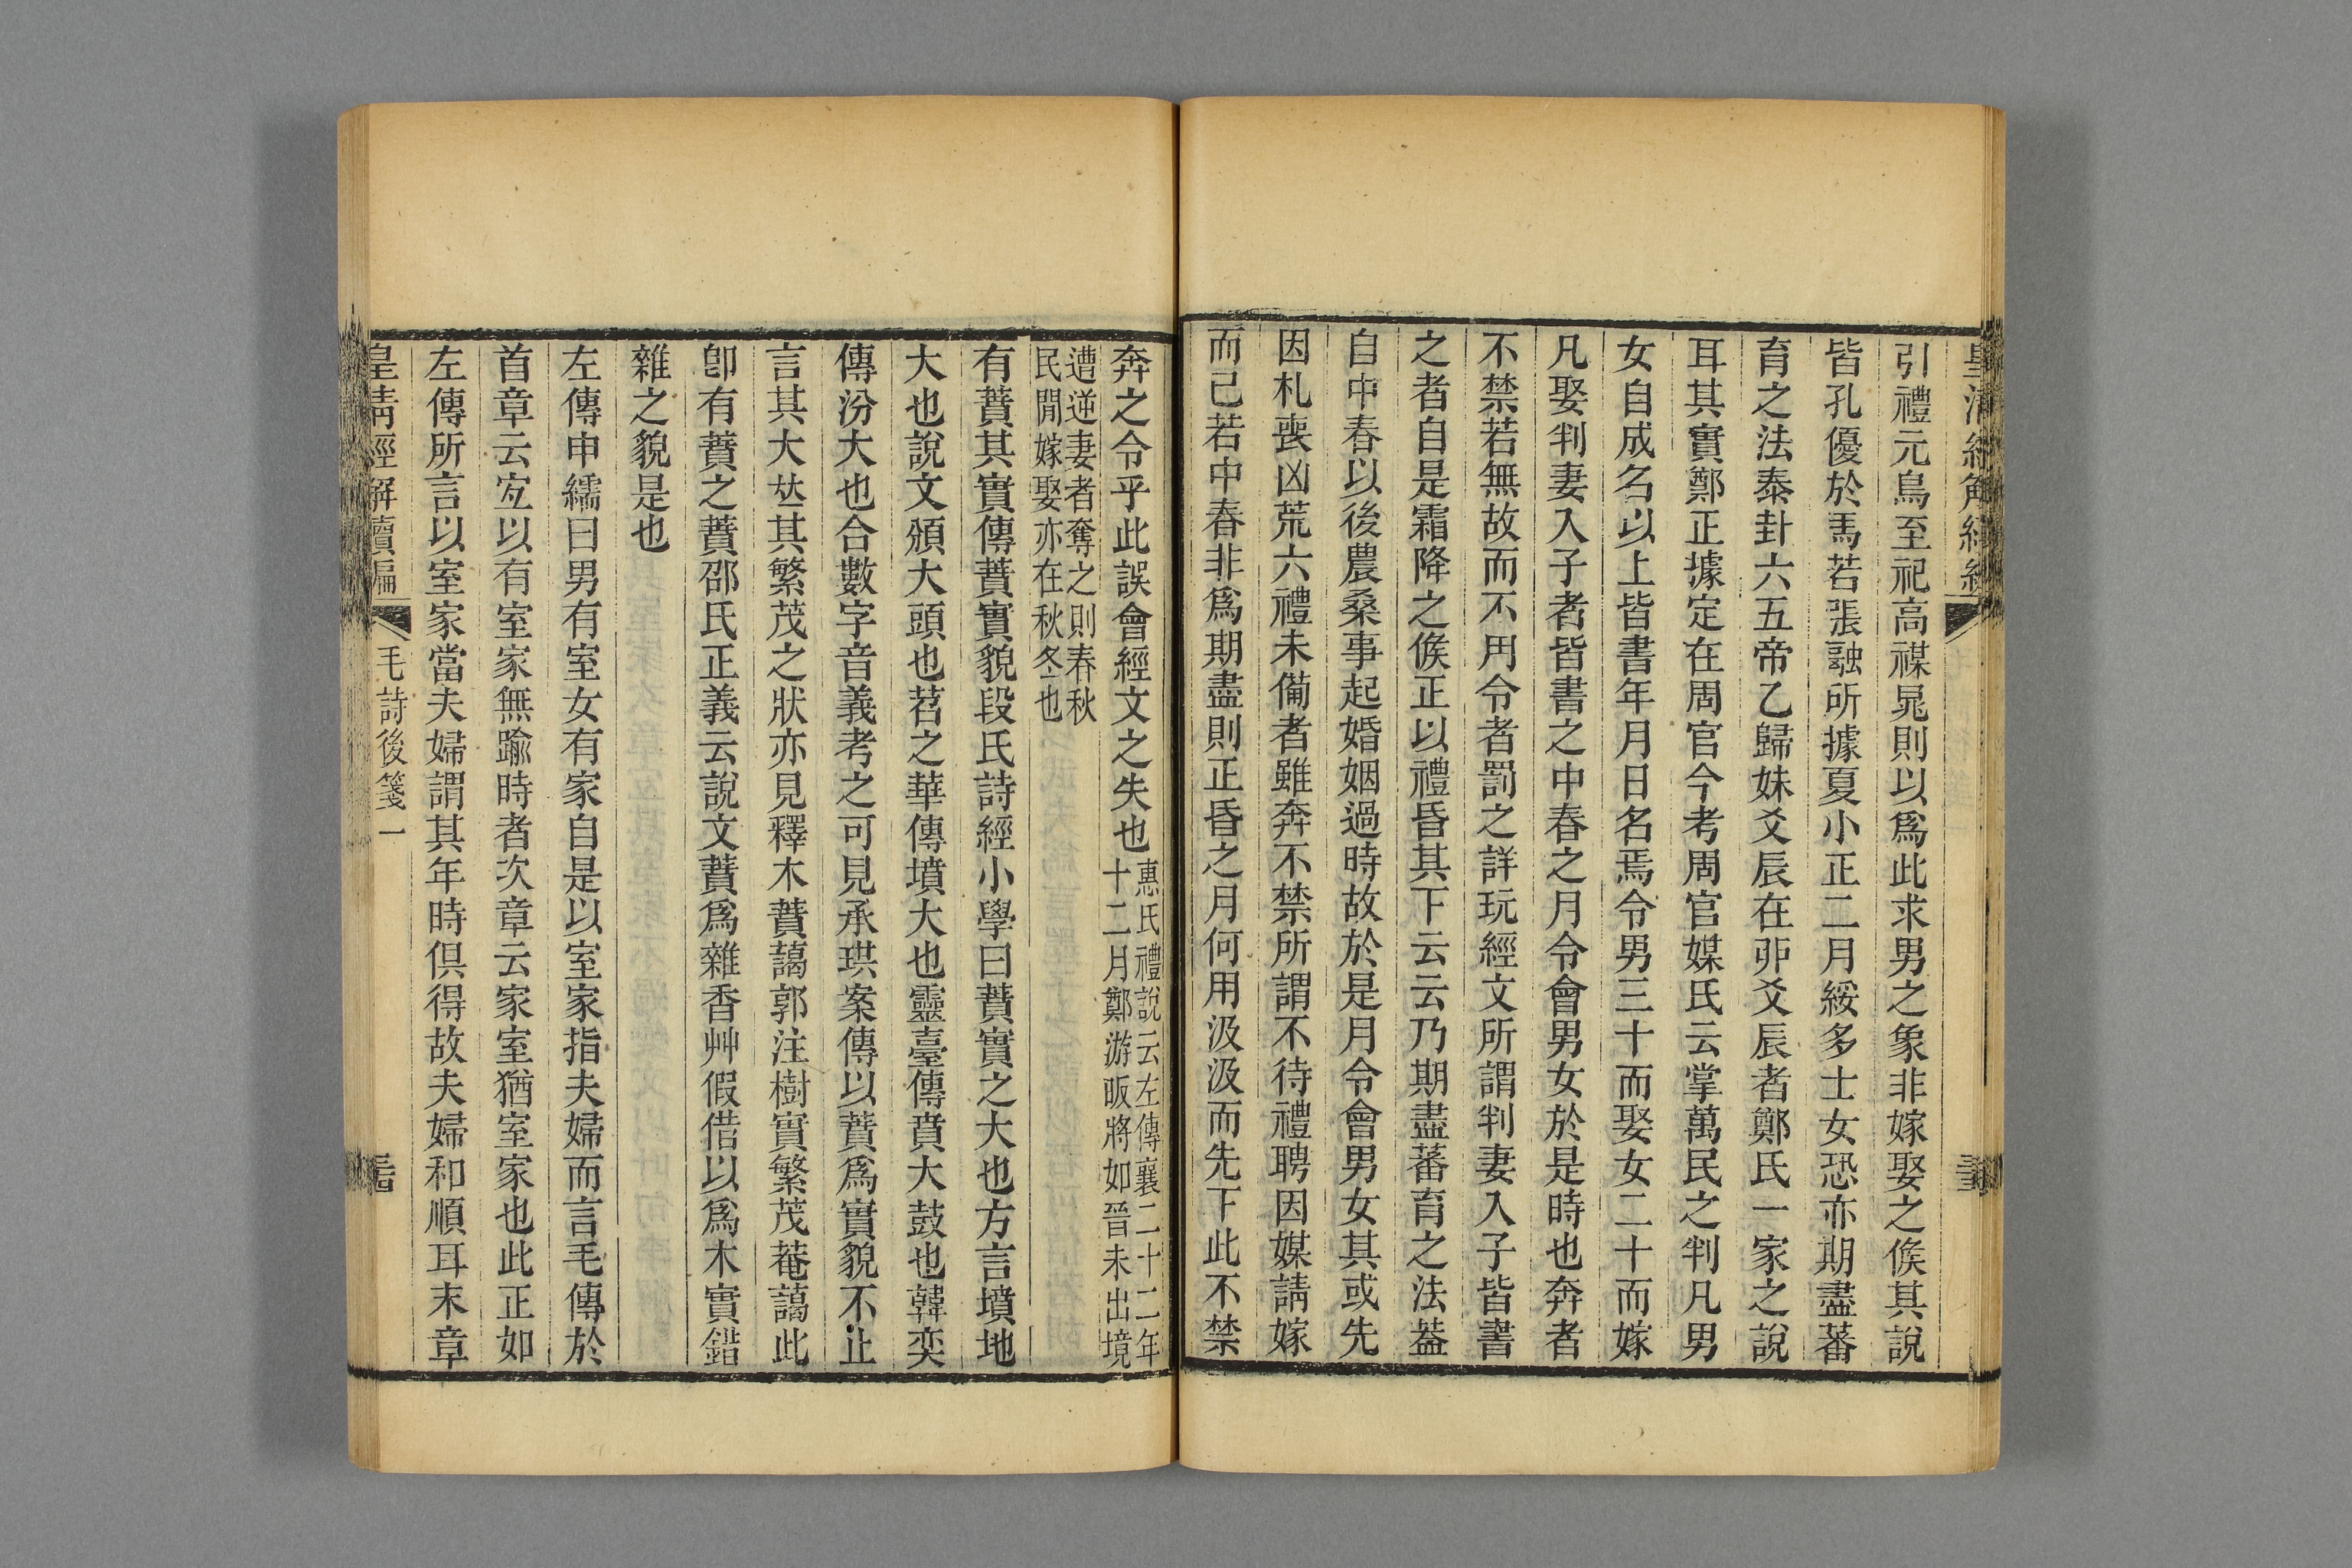 引禮元鳥至祀高禖晁則以爲此求男之象非嫁娶之候其說
皆孔優於馬若張融所據夏小正二月綏多士女恐亦期盡蕃
育之法泰卦六五帝乙歸妹爻辰在丣爻辰者鄭氏一家之說
耳其實鄭正據定在周官今考周官媒氏云掌萬民之判凡男
女自成名以上皆書年月日名焉令男三十而娶女二十而嫁
凡娶判妻入子者皆書之中春之月令會男女於是時也奔者
不禁若無故而不用令者罰之詳玩經文所謂判妻入子皆書
之者自是霜降之候正以禮昏其下云云乃期盡蕃育之法葢
自中春以後農桑事起婚姻過時故於是月令會男女其或先
因札喪凶荒六禮未備者雖奔不禁所謂不待禮聘因媒請嫁
而已若中春非爲期盡則正昏之月何用汲汲而先下此不禁
奔之令乎此誤會經文之失也
惠氏禮說云左傳襄二十二年
十二月鄭游眅將如晉未出境
遭逆妻者奪之則春秋
民閒嫁娶亦在秋冬也
有蕡其實傳蕡實貌段氏詩經小學曰蕡實之大也方言墳地
大也說文頒大頭也苕之華傳墳大也靈臺傳賁大鼓也韓奕
傳汾大也合數字音義考之可見承珙案傳以蕡爲實貌不止
言其大𠀤其繁茂之狀亦見釋木蕡藹郭注樹實繁茂菴藹此
卽有蕡之蕡邵氏正義云說文蕡爲雜香艸假借以爲木實錯
雜之貌是也
左傳申繻曰男有室女有家自是以室家指夫婦而言毛傳於
首章云宐以有室家無踰時者次章云家室猶室家也此正如
左傳所言以室家當夫婦謂其年時俱得故夫婦和順耳末章
皇清經解續編
毛詩後箋一